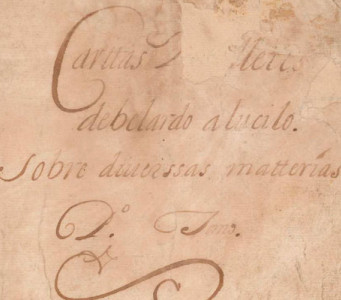 Cartas
debelardo alucilo.
Sobre diuerssas matterias
D.º